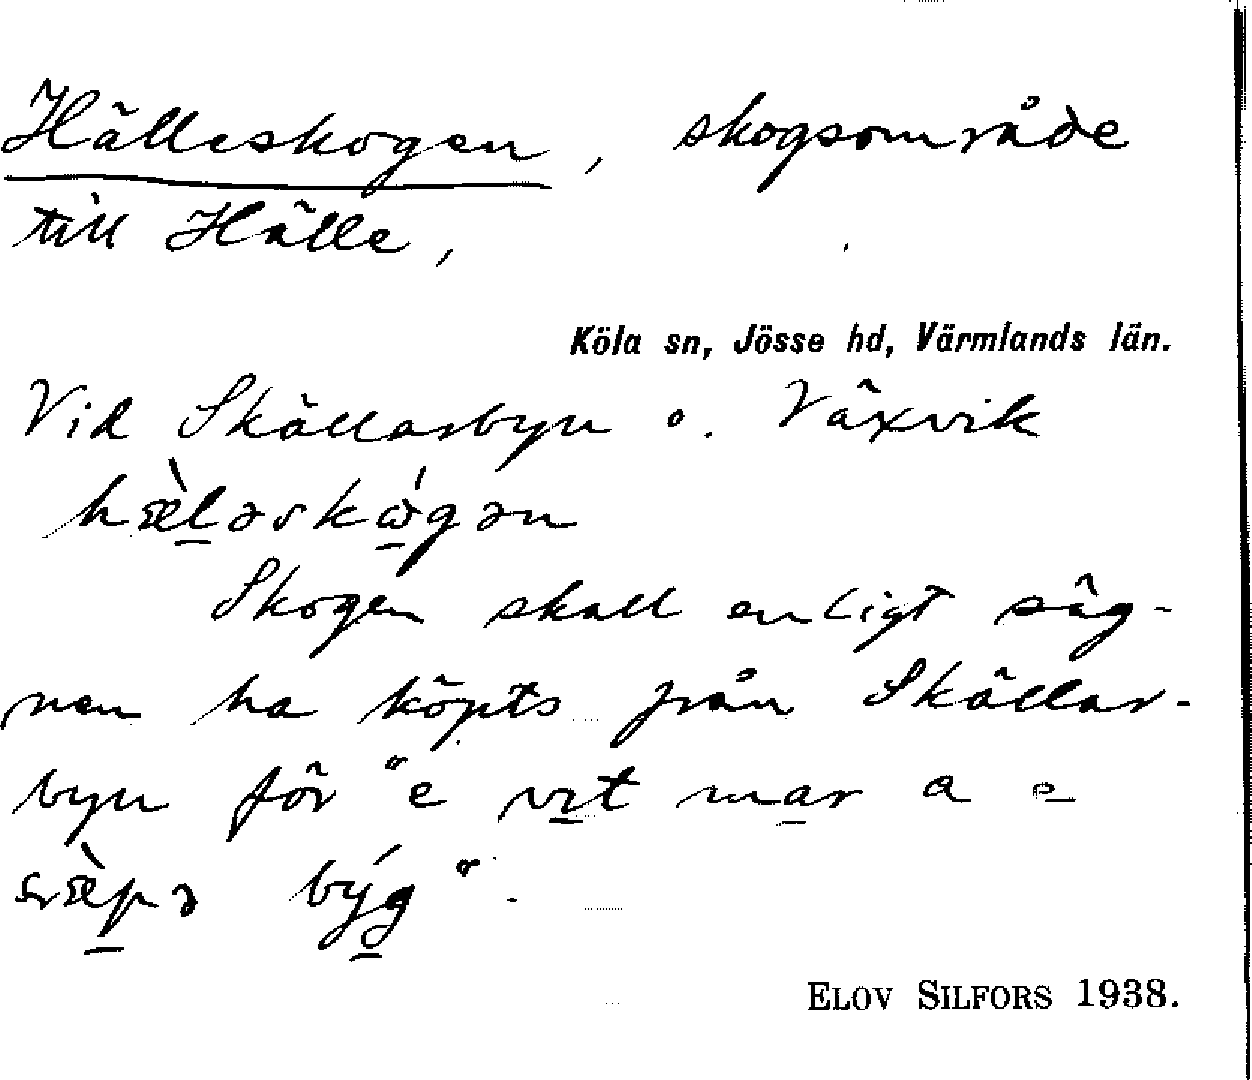 Hälleskogen, skogsområde
till Hälle,
Köla sn, Jösse hd, Värmlands län.
Vid Skällarbyn o. Växvik
hæ̀l̠əskώ̠gən
Skogen skall enligt säg-
nen ha köpts från Skällar-
byn för "e vı̠t mar a e̠
sræ̀p̠ə býg̠".
ELOV SILFORS 1938.